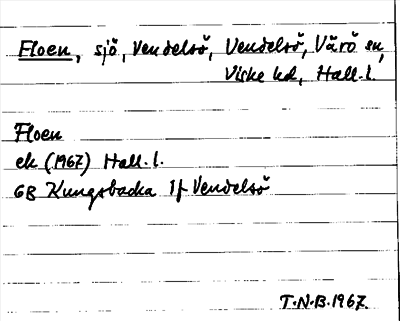 Floen, sjö, Vendelsö, Vendelsö, Värö sn,
Viske hd, Hall. l.
Floen
ek (1967) Hall. l.
6B Kungsbacka 1f Vendelsö
T.N.B. 1967.